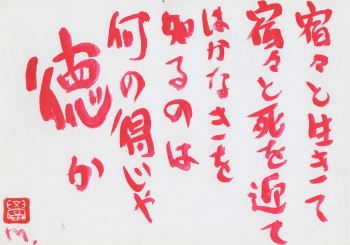 宿々と生きて
宿々と死を迎て
はかなきを
知るのは
何の得じゃ
徳か
M.